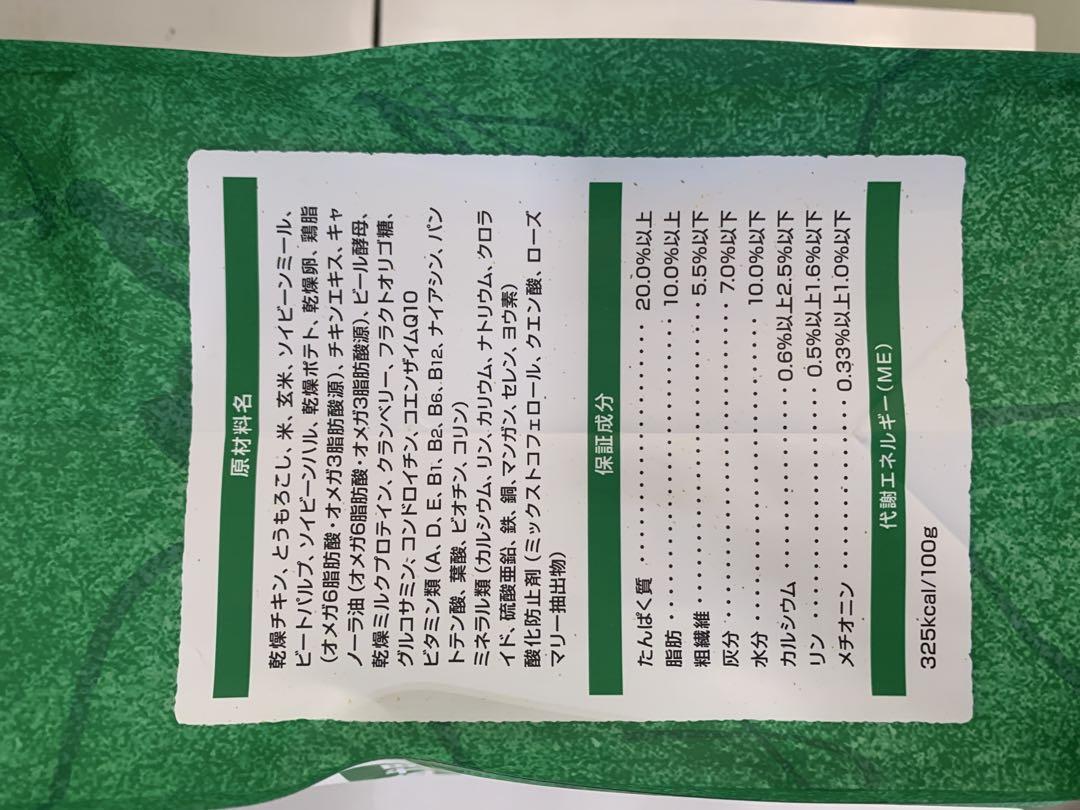 原材料名
乾燥チキン、とうもろこし、米、玄米、ソイビーンミール、
ビートパルプ、ソイビーンハル、乾燥ポテト、乾燥卵、鶏脂
（オメガ6脂肪酸・オメガ3脂肪酸源）、チキンエキス、キャ
ノーラ油（オメガ6脂肪酸・オメガ3脂肪酸源）、ビール酵母、
乾燥ミルクプロテイン、クランベリー、フラクトオリゴ糖、
グルコサミン、コンドロイチン、コエンザイムQ10
ビタミン類（A、D、E、B1、B2、B6、B12、ナイアシン、パン
トテン酸、葉酸、ビオチン、コリン）
ミネラル類（カルシウム、リン、カリウム、ナトリウム、クロラ
イド、硫酸亜鉛、鉄、銅、マンガン、セレン、ヨウ素）
酸化防止剤（ミックストコフェロール、クエン酸、ローズ
マリー抽出物）
保証成分
たんぱく質・・・・・・・・・・・・・・・・・・20.0%以上
脂肪・・・・・・・・・・・・・・・・・・・・・10.0%以上
粗繊維・・・・・・・・・・・・・・・・・・・・5.5%以下
灰分・・・・・・・・・・・・・・・・・・・・・7.0%以下
水分・・・・・・・・・・・・・・・・・・・・・10.0%以下
カルシウム・・・・・・・・・・・・0.6%以上2.5%以下
リン・・・・・・・・・・・・・・・0.5%以上1.6%以下
メチオニン・・・・・・・・・・・・0.33%以上1.0%以下
代謝エネルギー（ME）
325kcal/100g